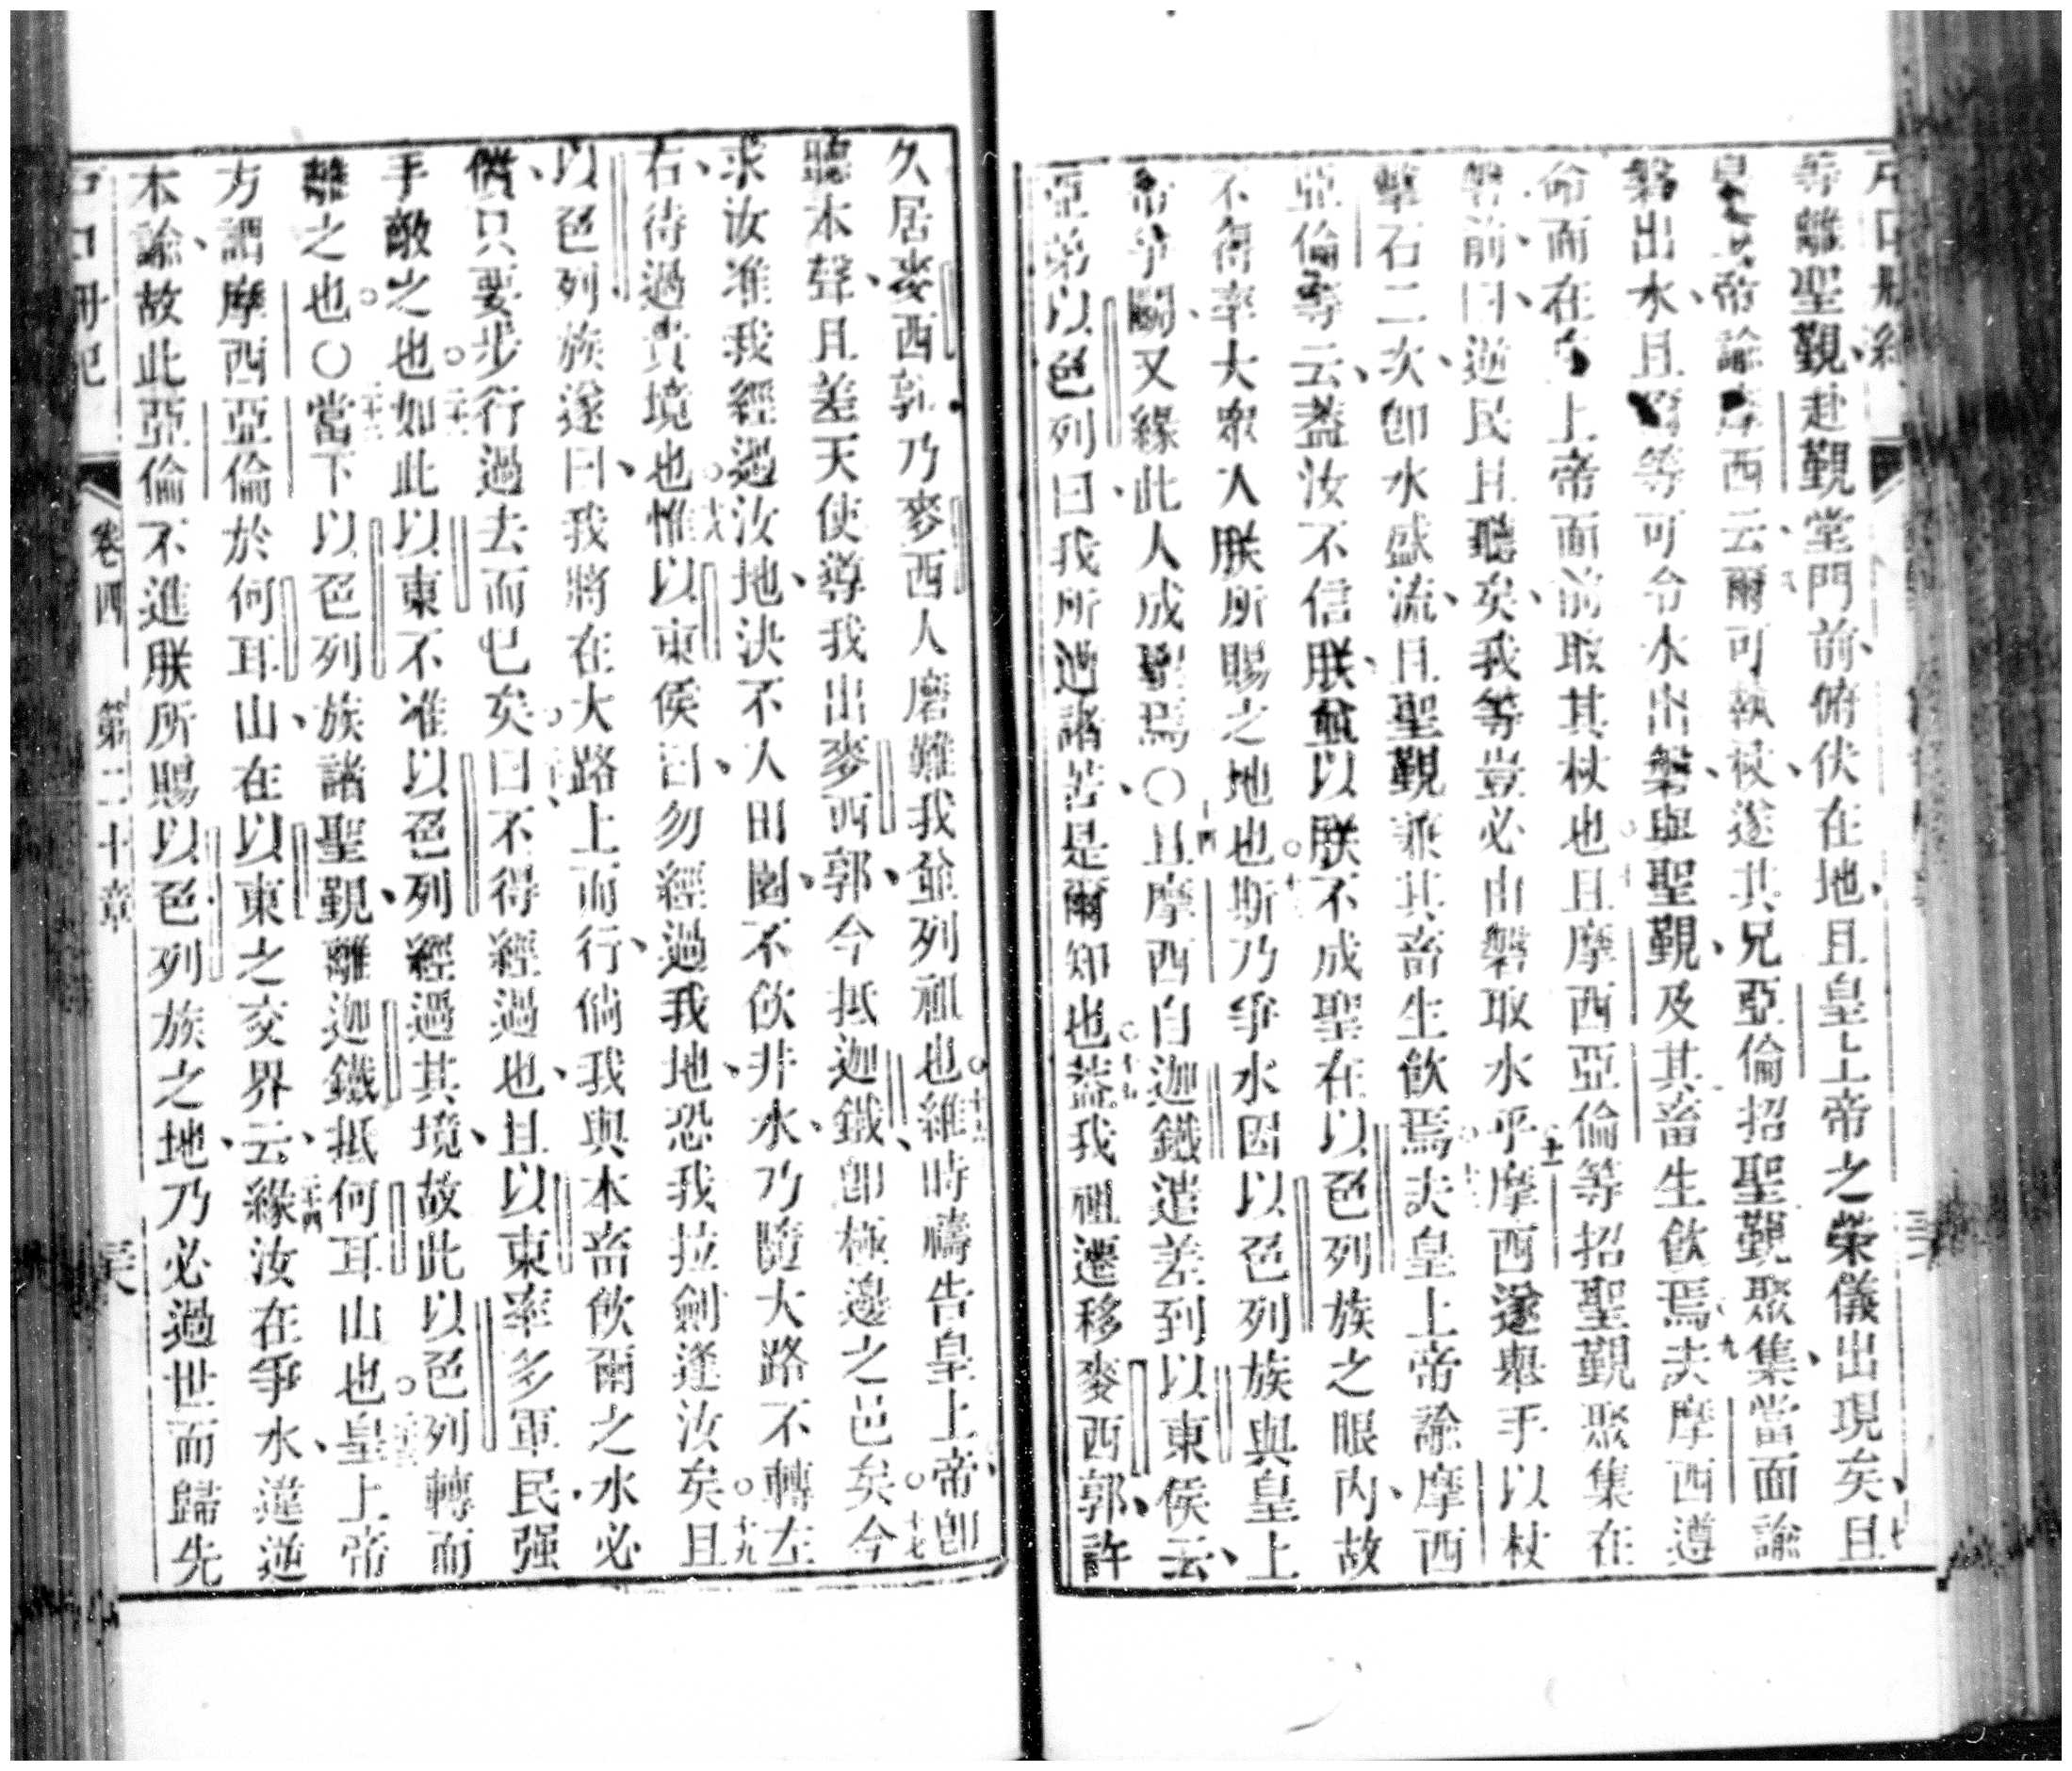 等離聖觀、赴觀堂門前、俯伏在地、且皇上帝之榮儀出現矣、七且
皇上帝諭摩西云、八爾可執杖、遂其兄亞倫招聖觀聚集、當面諭
磐出水、且爾等可令水出磐、與聖觀、及其畜生飲焉、九夫摩西遵
命而在皇上帝面前取其杖也○十且摩西亞倫等招聖觀聚集在
磐前、曰、逆民且聽矣、我等豈必由磐取水乎、十一摩西遂舉手以杖
擊石二次、卽水盛流、且聖觀兼其畜生飲焉○十二夫皇上帝諭摩西
亞倫等云、蓋汝不信朕、並以朕不成聖在以色列族之眼內、故
不得率大眾入朕所賜之地也○十三斯乃爭水因以色列族與皇上
帝爭鬬、又緣此人成聖焉○十四且摩西自迦鐵遣差到以東侯云、
亞弟以色列曰、我所遇諸苦、是爾知也○十五蓋我祖遷移麥西郭、許
久居麥西郭、乃麥西人磨難我並列祖也○十六維時禱告皇上帝、卽
聽本聲、且差天使導我出麥西郭、今抵迦鐵、卽極邊之邑矣○十七今
求汝准我經過汝地、決不入田園、不飲井水、乃隨大路不轉左
右、待過貴境也○十八惟以東侯曰、勿經過我地、恐我拉劍逢汝矣○十九且
以色列族遂曰、我將在大路上而行、倘我與本畜飲爾之水、必
償、只要步行過去而已矣○二十曰、不得經過也、且以東率多軍民、强
手敵之也○二十一如此以東不准以色列經過其境、故此以色列轉而
離之也○二十二○當下以色列族諸聖觀、離迦鐵抵何耳山也○二十三皇上帝
方謂摩西亞倫於何耳山、在以東之交界云、二十四緣汝在爭水、違逆
本諭、故此亞倫不進朕所賜以色列族之地、乃必過世而歸先
卷四 第二十章